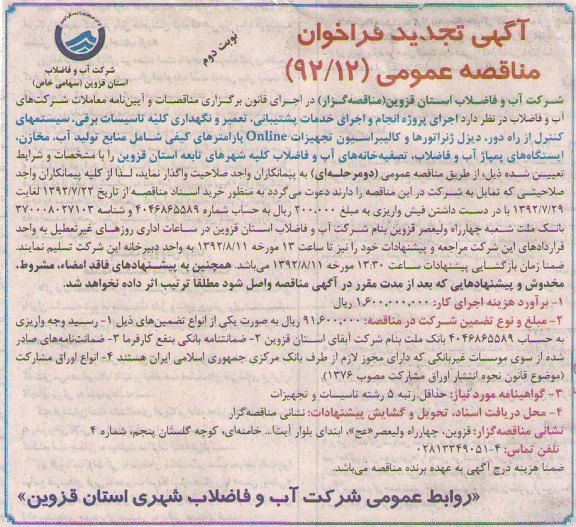 آگهی تجدید فراخوان
مناقصه عمومی (۹۲/۱۲)
نوبت دوم
شرکت آب و فاضلاب
استان قزوین (سهامی خاص)
شرکت آب و فاضلاب استان قزوین(مناقصه‌گزار) در اجرای قانون برگزاری مناقصات و آیین‌نامه معاملات شرکت‌های
آب و فاضلاب در نظر دارد اجرای پروژه انجام و اجرای خدمات پشتیبانی، تعمیر و نگهداری کلیه تاسیسات برقی، سیستمهای
کنترل از راه دور، دیزل ژنراتورها و کالیبراسیون تجهیزات Online پارامترهای کیفی شامل منابع تولید آب، مخازن،
ایستگاه‌های پمپاژ آب و فاضلاب، تصفیه‌خانه‌های آب و فاضلاب کلیه شهرهای تابعه استان قزوین را با مشخصات و شرایط
تعیین‌ شده ذیل، از طریق مناقصه عمومی (دومرحله‌ای) به پیمانکاران واجد صلاحیت واگذار نماید، لذا از کلیه پیمانکاران واجد
صلاحیتی که تمایل به شرکت در این مناقصه را دارند دعوت می‌گردد به منظور خرید اسناد مناقصه از تاریخ ۱۳۹۲/۷/۲۲ لغایت
۱۳۹۲/۷/۲۹ با در دست داشتن فیش واریزی به مبلغ ۲۰۰.۰۰۰ ریال به حساب شماره ۴۰۴۶۸۶۵۵۸۹ و شناسه ۳۷۰۰۰۸۰۳۷۱۰۳
بانک ملت شعبه چهارراه ولیعصر قزوین بنام شرکت آب و فاضلاب استان قزوین در ساعات اداری روزهای غیرتعطیل به واحد
قراردادهای این شرکت مراجعه و پیشنهادات خود را نیز تا ساعت ۱۳ مورخه ۱۳۹۲/۸/۱۱ به واحد دبیرخانه این شرکت تسلیم نمایند.
ضمنا زمان بازگشایی پیشنهادات ساعت ۱۳:۳۰ مورخه ۱۳۹۲/۸/۱۱ می‌باشد. همچنین به پیشنهادهای فاقد امضاء، مشروط،
مخدوش و پیشنهادهایی که بعد از مدت مقرر در آگهی مناقصه واصل شود مطلقا ترتیب اثر داده نخواهد شد.
۱- برآورد هزینه اجرای کار: ۱.۶۰۰.۰۰۰.۰۰۰ ریال
۲- مبلغ و نوع تضمین شرکت در مناقصه: ۹۱.۶۰۰.۰۰۰ ریال به صورت یکی از انواع تضمین‌های ذیل ۱- رسید وجه واریزی
به حساب ۴۰۴۶۸۶۵۵۸۹ بانک ملت بنام شرکت آبفای استان قزوین ۲- ضمانتنامه بانکی بنفع کارفرما ۳- ضمانت‌نامه‌های صادر
شده از سوی موسسات غیربانکی که دارای مجوز لازم از طرف بانک مرکزی جمهوری اسلامی ایران هستند ۴- انواع اوراق مشارکت
(موضوع قانون نحوه انتشار اوراق مشارکت مصوب ۱۳۷۶).
۳- گواهینامه مورد نیاز: حداقل رتبه ۵ رشته تاسیسات و تجهیزات
۴- محل دریافت اسناد، تحویل و گشایش پیشنهادات: نشانی مناقصه‌گزار
نشانی مناقصه‌گزار: قزوین، چهارراه ولیعصر«عج»، ابتدای بلوار آیت‌ا... خامنه‌ای، کوچه گلستان پنجم، شماره ۴
تلفن تماس: ۴-۰۲۸۱۳۳۴۹۰۵۱
ضمنا هزینه درج آگهی به عهده برنده مناقصه می‌باشد.
«روابط عمومی شرکت آب و فاضلاب شهری استان قزوین»